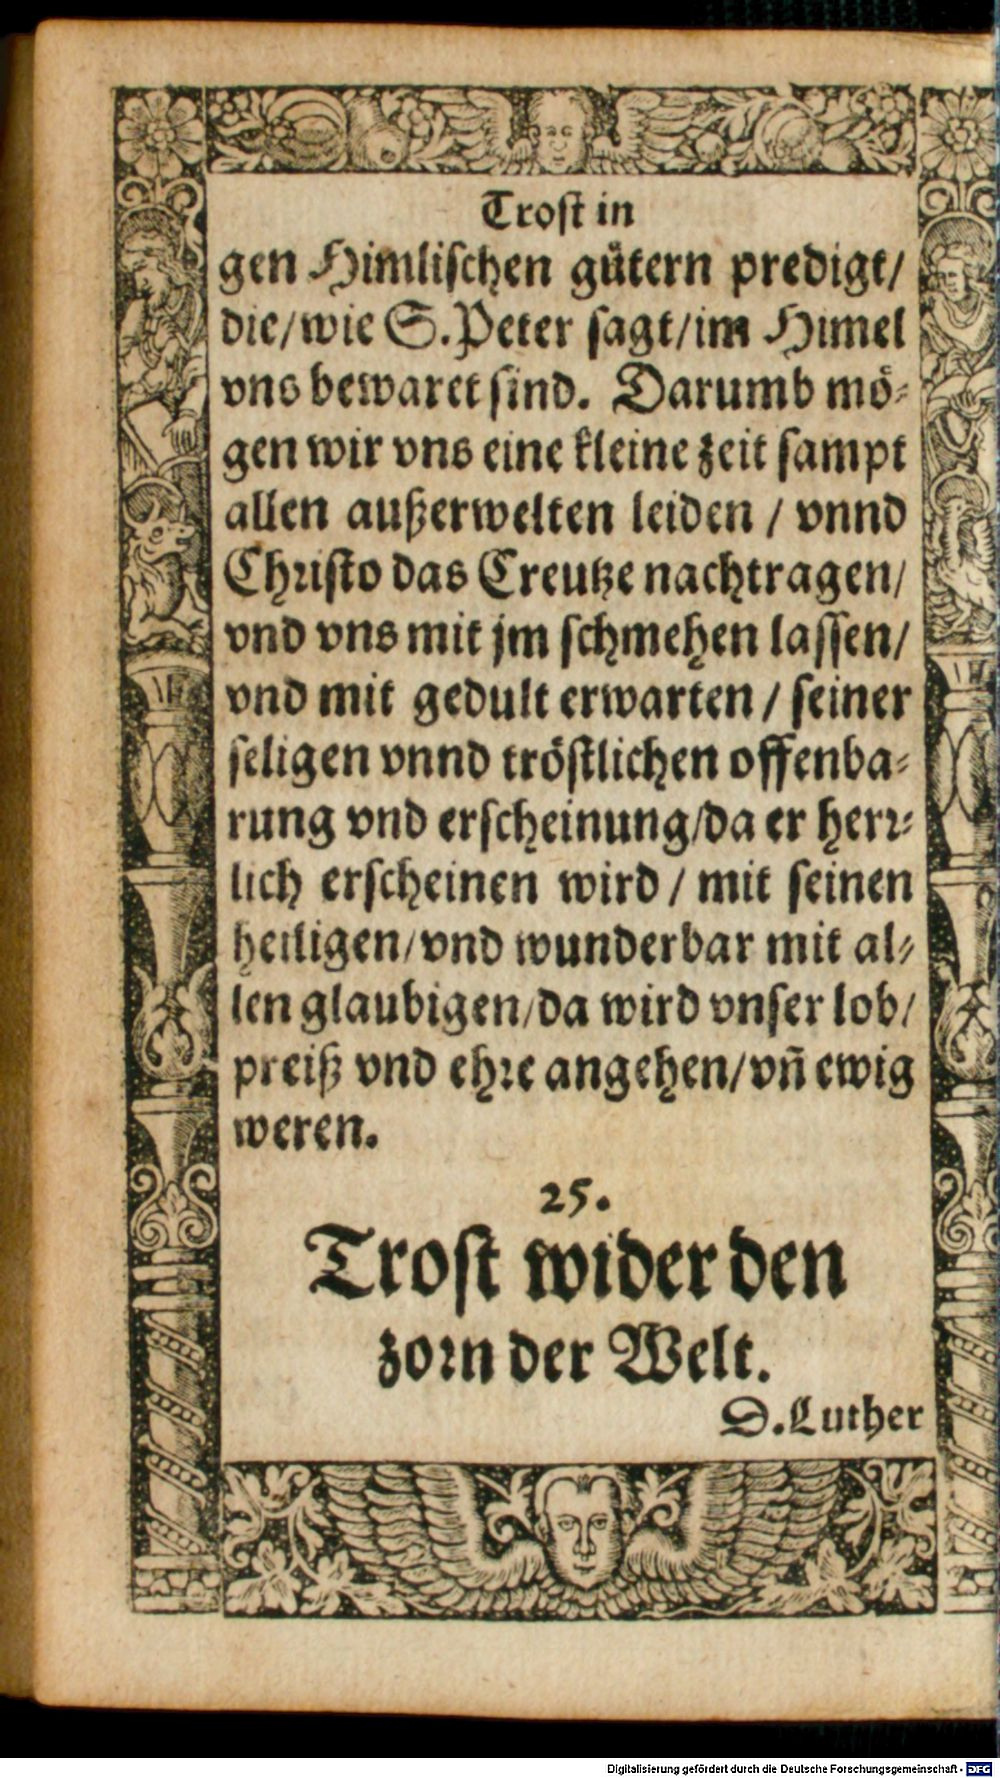 Trost in
gen Himlischen gůtern predigt/
die/wie S.Peter sagt/im Himel
vns bewaret sind. Darumb mö-
gen wir vns eine kleine zeit sampt
allen außerwelten leiden / vnnd
Christo das Creutze nachtragen/
vnd vns mit jm schmehen lassen/
vnd mit gedult erwarten / seiner
seligen vnnd tröstlichen offenba-
rung vnd erscheinung/da er herr-
lich erscheinen wird / mit seinen
heiligen/vnd wunderbar mit al-
len glaubigen/da wird vnser lob/
preiß vnd ehre angehen/vñ ewig
weren.
25.
Trost wider den
zorn der Welt.
D.Luther
Digitalisierung gefördert durch die Deutsche Forschungsgemeinschaft - DFG